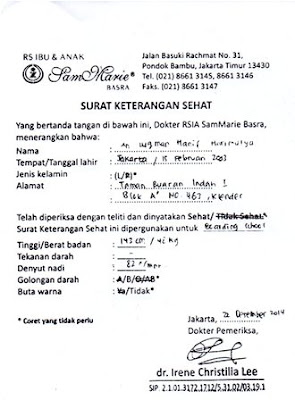 RS IBU & ANAK
SamMarie®
BASRA
Jalan Basuki Rachmat No. 31,
Pondok Bambu, Jakarta Timur 13430
Tel. (021) 8661 3145, 8661 3146
Faks. (021) 8661 3147
SURAT KETERANGAN SEHAT
Yang bertanda tangan di bawah ini, Dokter RSIA SamMarie Basra,
menerangkan bahwa:
Nama : An Luqman Hanif
Tempat/Tanggal lahir : Jakarta / 15 Februari 2003
Jenis kelamin : (L/P)*
Alamat : Taman Buaran Indah 1
Blok A No 463, Klender
Telah diperiksa dengan teliti dan dinyatakan Sehat/ Tidak Sehat.*
Surat Keterangan Sehat ini dipergunakan untuk Boarding School
Tinggi/Berat badan : 143 cm / 42 kg
Tekanan darah : –
Denyut nadi : 82 x/mnt
Golongan darah : A/B/O/AB*
Buta warna : Ya/Tidak*
* Coret yang tidak perlu
Jakarta, 22 Desember 2014
Dokter Pemeriksa,
dr. Irene Christilia Lee
SIP. 2.1.01.3172.1712/5.31.02/03.19.1